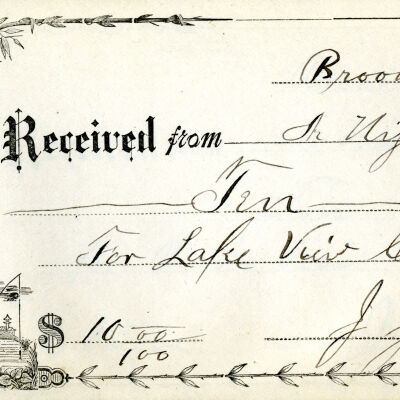 Broo
Received from
Ten
For Lake View C
$ 10 00/100
J